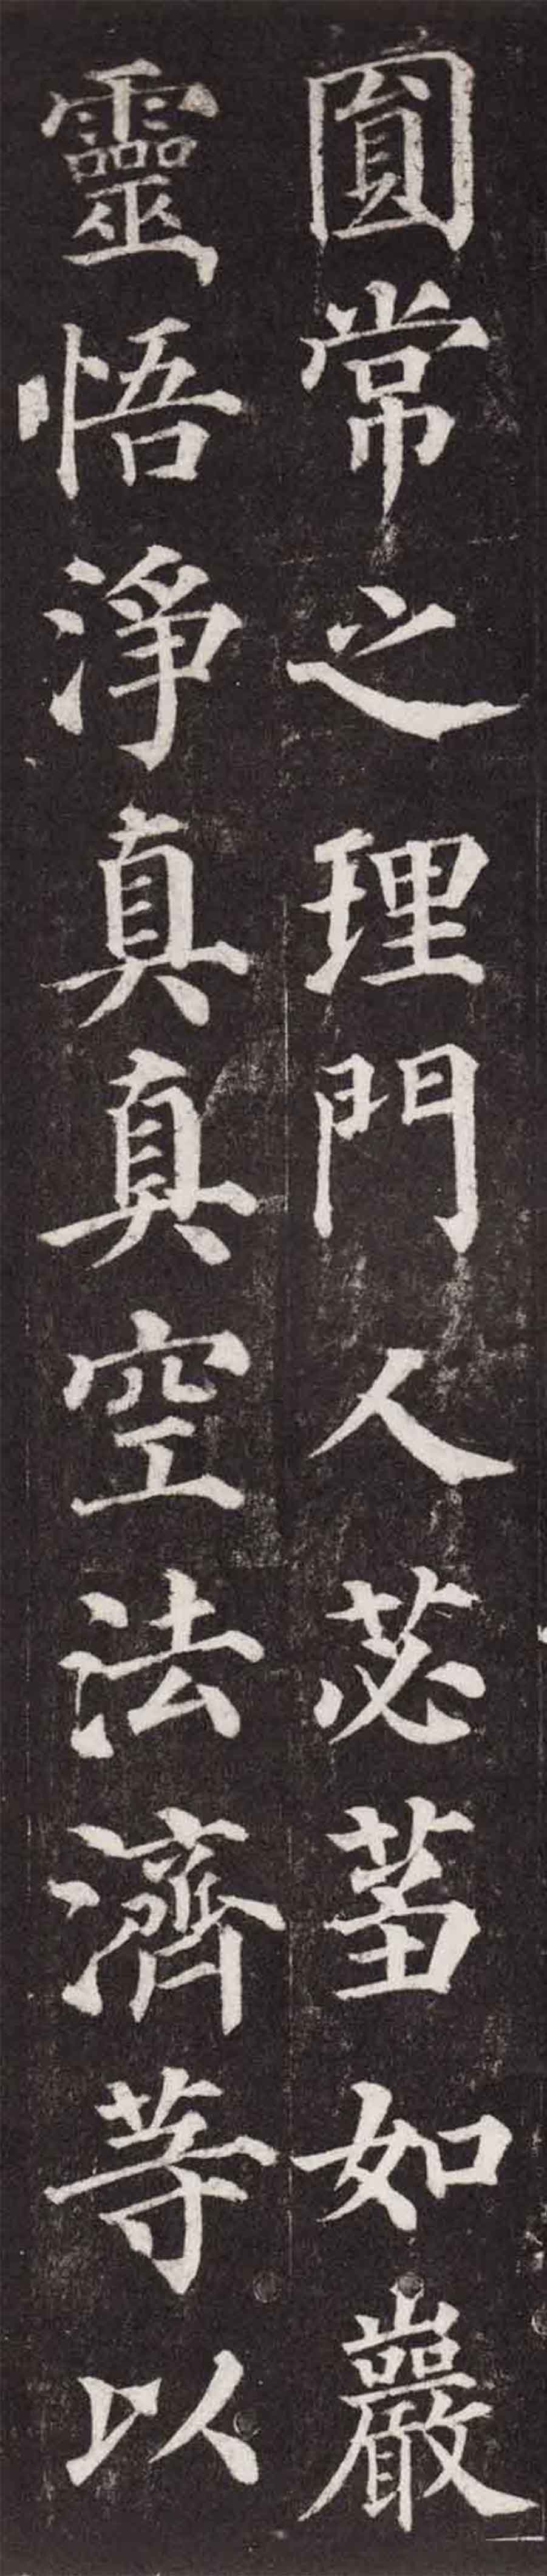 圓常之理門人苾蒭如巖
靈悟淨真真空法濟等以